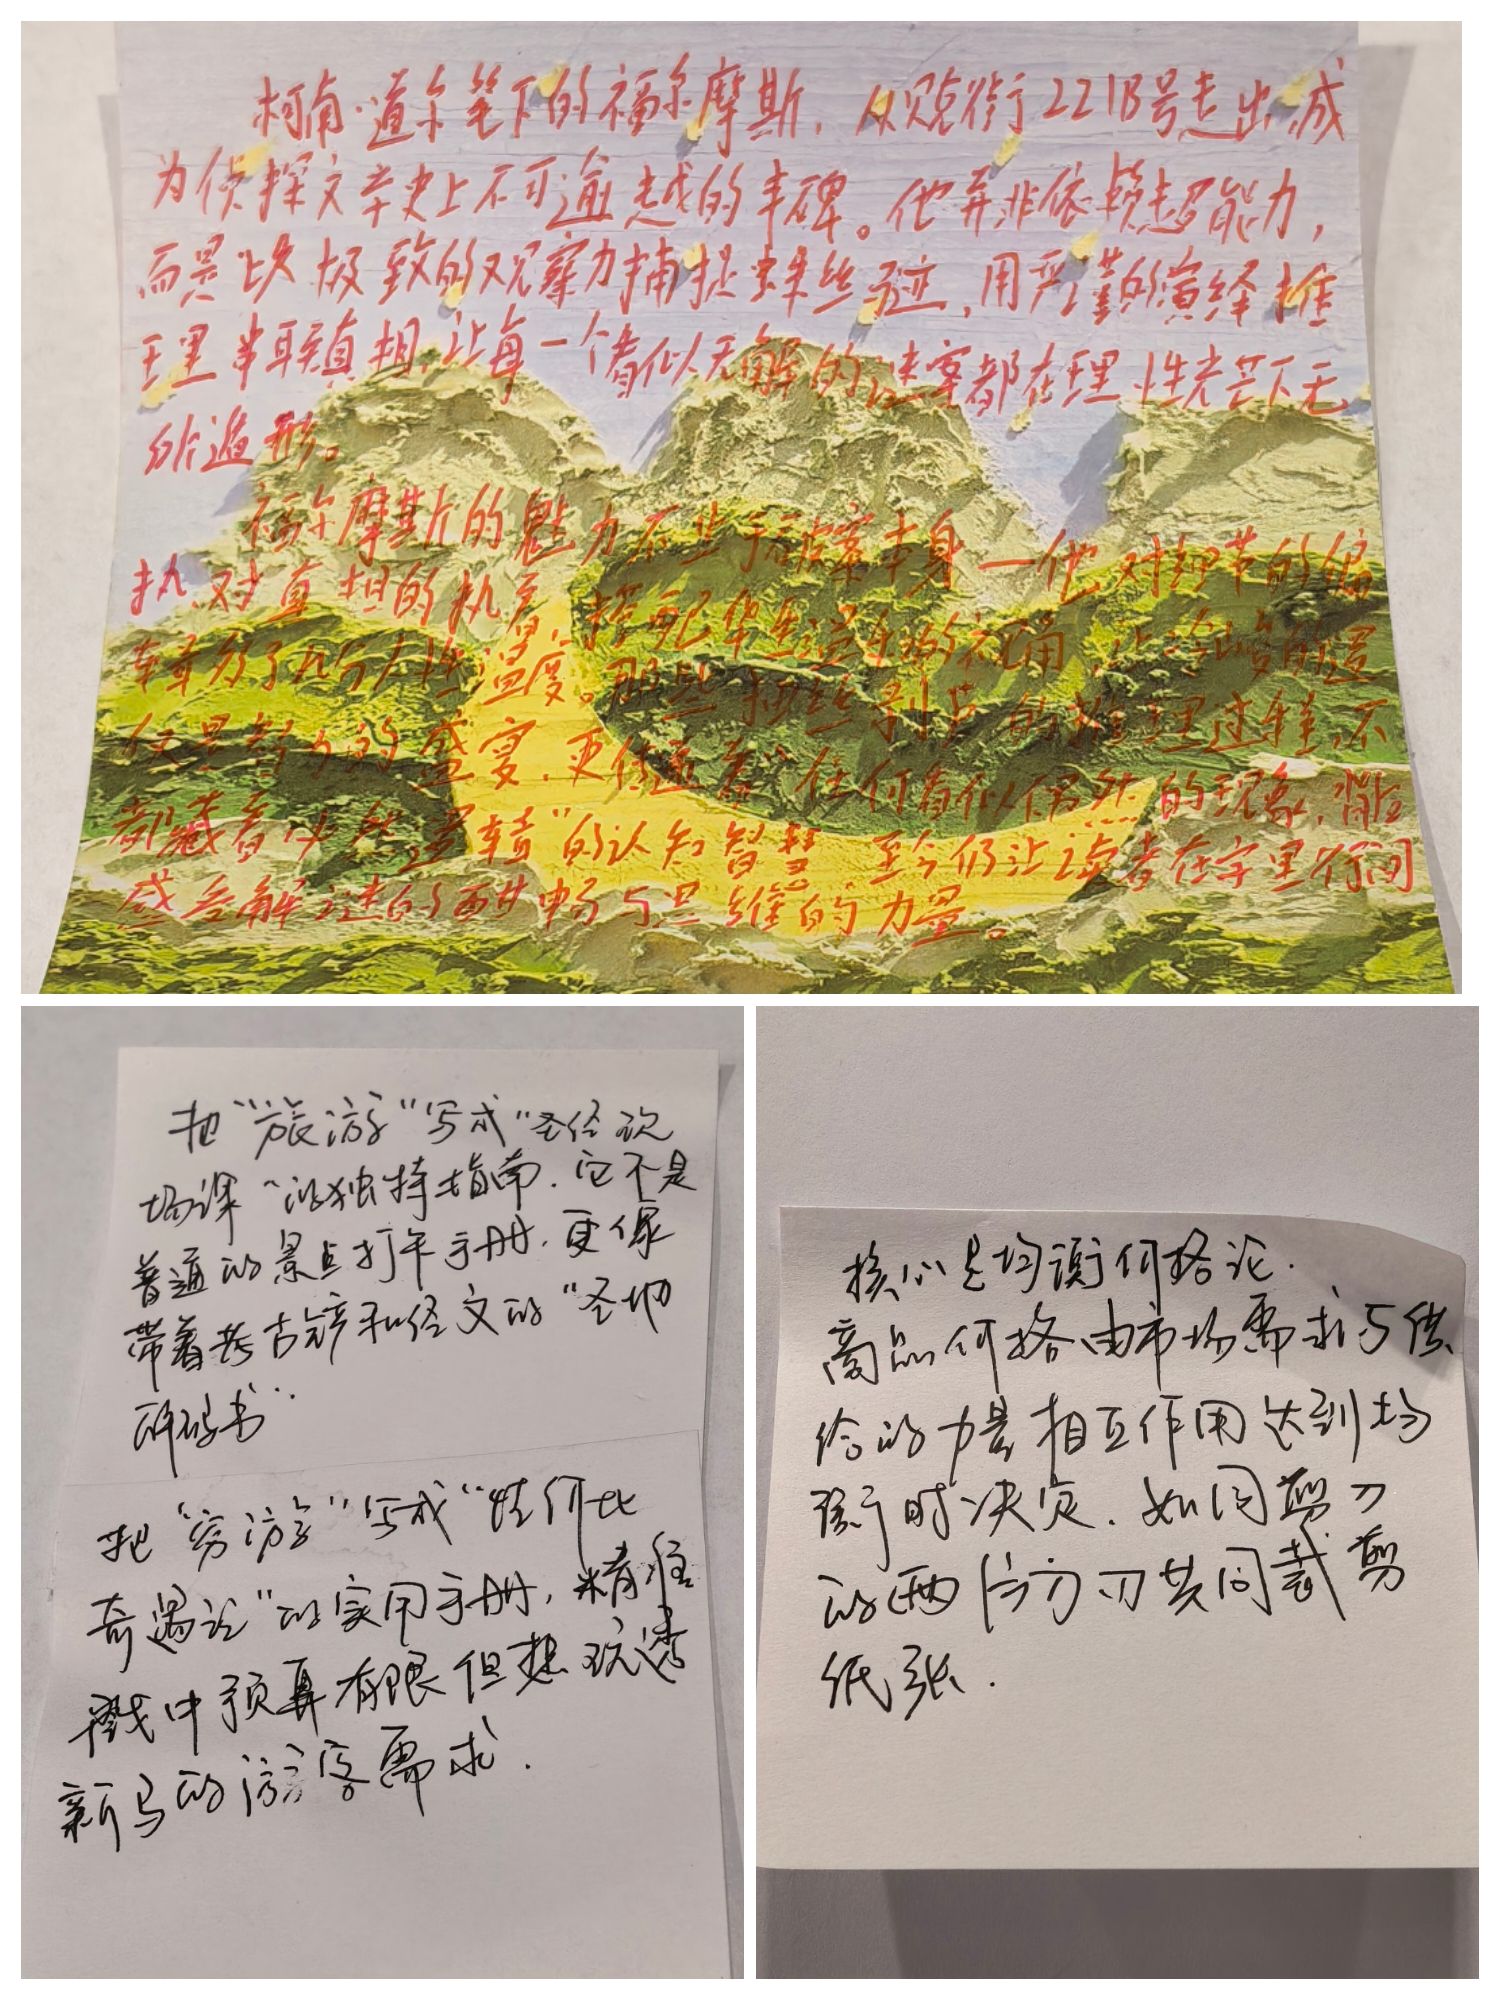 柯南·道尔笔下的福尔摩斯，从贝克街221B号走出，成
为侦探文学史上不可逾越的丰碑。他并非依赖超能力，
而是以极致的观察力捕捉蛛丝马迹，用严谨的演绎推
理串联真相，让每一个看似无解的谜案都在理性光芒下无
所遁形。
福尔摩斯的魅力不止于破案本身—他对细节的偏
执、对真相的执着，搭配华生医生的视角，让冷峻的逻
辑多了几分人性温度。那些抽丝剥茧的推理过程，不
仅是智力的盛宴，更传递着"任何看似偶然的现象，背后
都藏着必然逻辑"的认知智慧，至今仍让读者在字里行间
感受解谜的酣畅与思维的力量。
把"旅游"写成"圣经现
场课"的独特指南，它不是
普通的景点打卡手册，更像
带着考古铲和经文的"圣地
解码书"。
把"穷游"写成"性价比
奇遇记"的实用手册，精准
戳中预算有限但想玩透
新马的游客需求。
核心是均衡价格论。
商品价格由市场需求与供
给的力量相互作用达到均
衡时决定，如同剪刀
的两片刀刃共同裁剪
纸张。